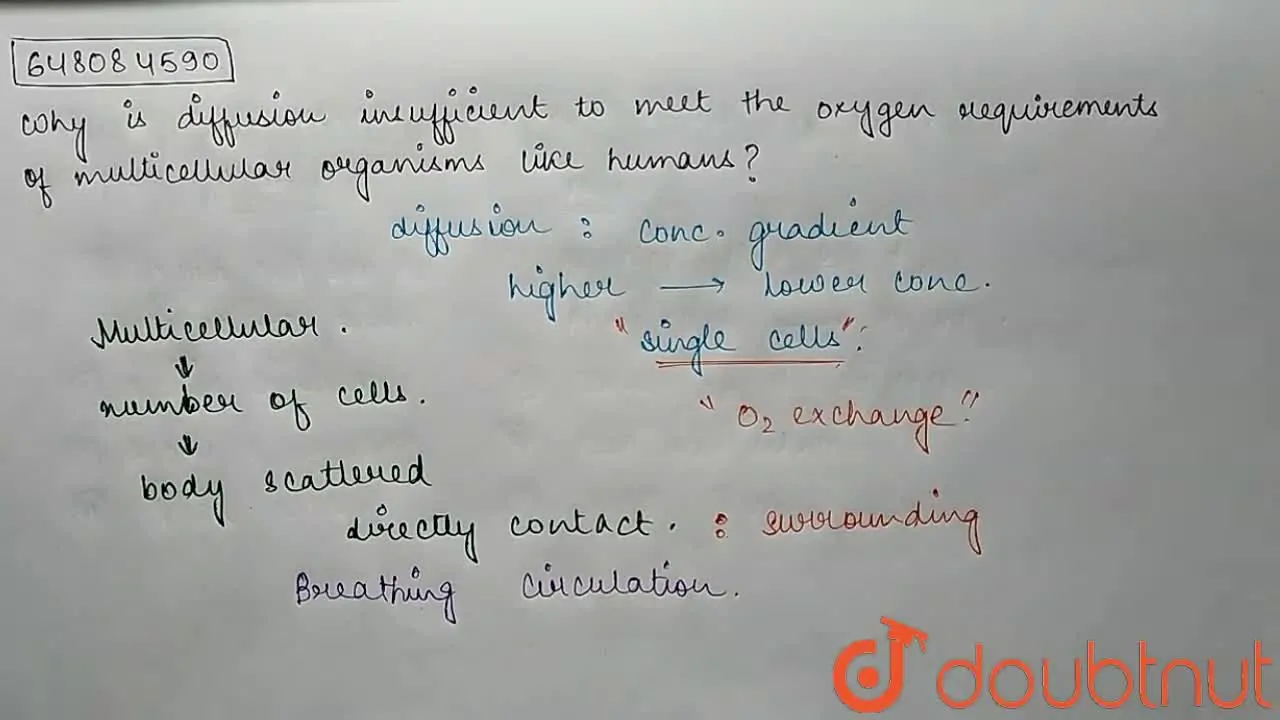 648084590
Why is diffusion insufficient to meet the oxygen requirements
of multicellular organisms like humans?
diffusion : conc. gradient
higher → lower conc.
Multicellular.
"single cells":
number of cells.
"O₂ exchange"
body scattered
directly contact. : surrounding
Breathing circulation.
doubtnut